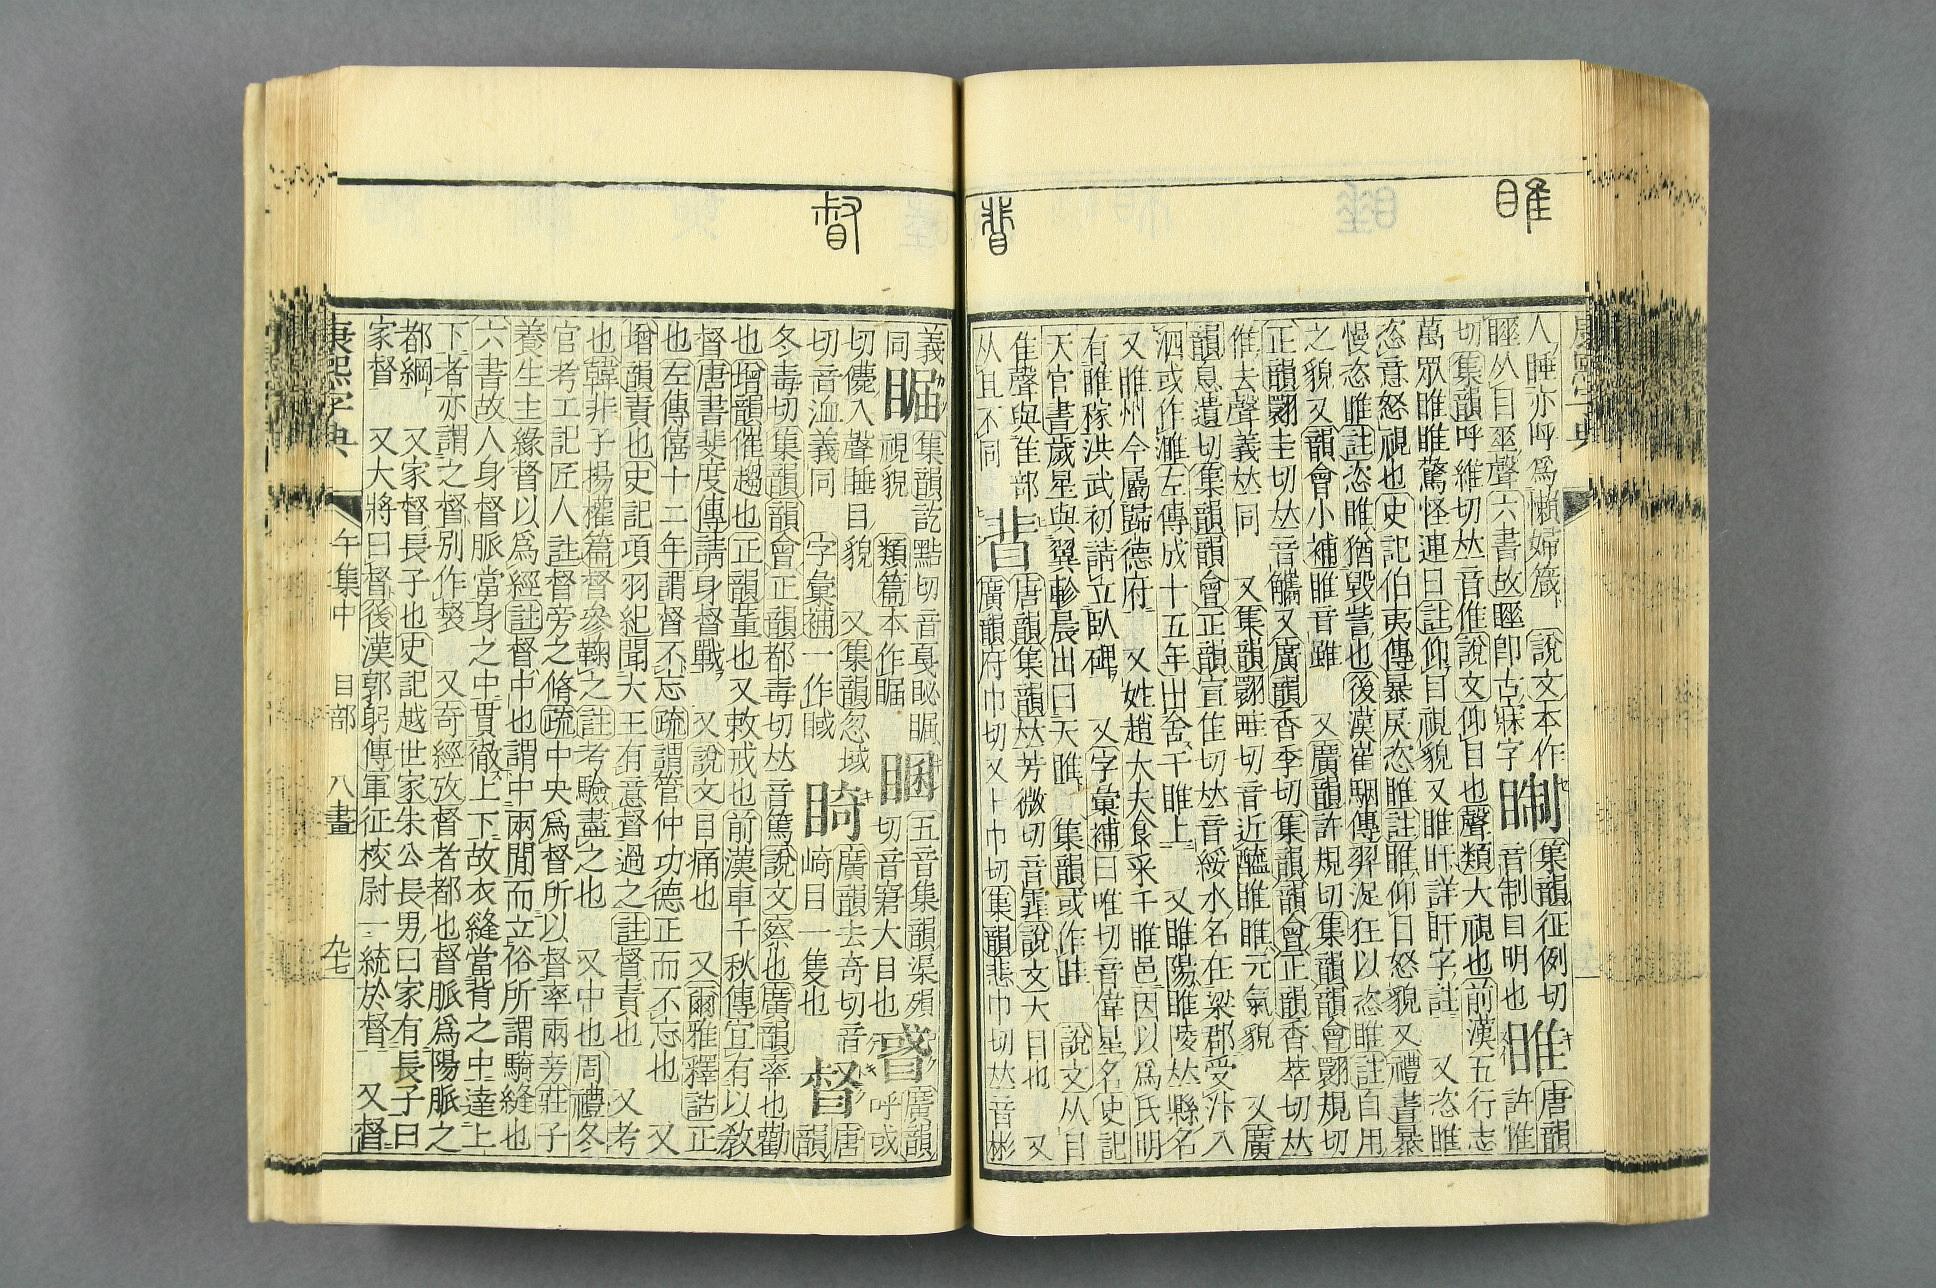 睢
䀟
督
人睡亦呼爲懶婦箴 說文本作 集韻征例切睢唐韻
从目坙聲六書故卽古寐字 音制目明也 許惟
切集韻呼維切𠀤音倠說文仰目也聲類大視也前漢五行志
萬眾睢睢驚怪連日註仰目視貌又睢盱詳盱字註 又恣睢
恣意怒視也史記伯夷傳暴戾恣睢註睢仰白目怒貌又禮書暴
慢恣睢註恣睢猶毀訾也後漢崔駰傳羿浞狂以恣睢註自用
之貌又韻會小補睢音雖 又廣韻許規切集韻韻會翾規切
正韻翾圭切𠀤音觿又廣韻香季切集韻韻會正韻香萃切𠀤
倠去聲義𠀤同 又集韻翾畦切音近醯睢睢元氣貌 又廣
韻息遺切集韻韻會正韻宣隹切𠀤音綏水名在梁郡受汴入
泗或作濉左傳成十五年出舍于睢上 又睢陽睢陵𠀤縣名
又睢州今屬歸德府 又姓趙大夫食采于睢邑因以爲氏明
有睢稼洪武初請立臥碑 又字彙補曰唯切音偉星名史記
天官書歲星與翼軫晨出曰天睢 集韻或作眭 說文从目
隹聲與隹部 唐韻集韻𠀤芳微切音霏說文大目也 又
从且不同 䀟廣韻府巾切又卜巾切集韻悲巾切𠀤音彬
義 集韻訖黠切音戛䀣 五音集韻渠殞 廣韻
同 視貌 類篇本作 睏切音窘大目也 呼或
切儂入聲睡目貌 又集韻忽域 廣韻去奇切音 唐
切音洫義同 字彙補一作 䗁崎目一隻也 督韻
冬毒切集韻韻會正韻都毒切𠀤音篤說文察也廣韻率也勸
也增韻催趨也正韻董也又敕戒也前漢車千秋傳宜有以敎
督唐書裴度傳請身督戰 又說文目痛也 又爾雅釋詁正
也左傳僖十二年謂督不忘疏謂管仲功德正而不忘也 又
增韻責也史記項羽紀聞大王有意督過之註督責也 又考
也韓非子揚權篇督參鞠之註考驗盡之也 又中也周禮冬
官考工記匠人註督旁之脩疏中央爲督所以督率兩旁莊子
養生主緣督以爲經註督中也謂中兩閒而立俗所謂騎縫也
六書故人身督脈當身之中貫徹上下故衣縫當背之中達上
下者亦謂之督別作裻 又奇經攷督者都也督脈爲陽脈之
都綱 又家督長子也史記越世家朱公長男曰家有長子曰
家督 又大將曰督後漢郭躬傳軍征校尉一統於督 又督
康熙字典 午集中 目部 八畫 九七